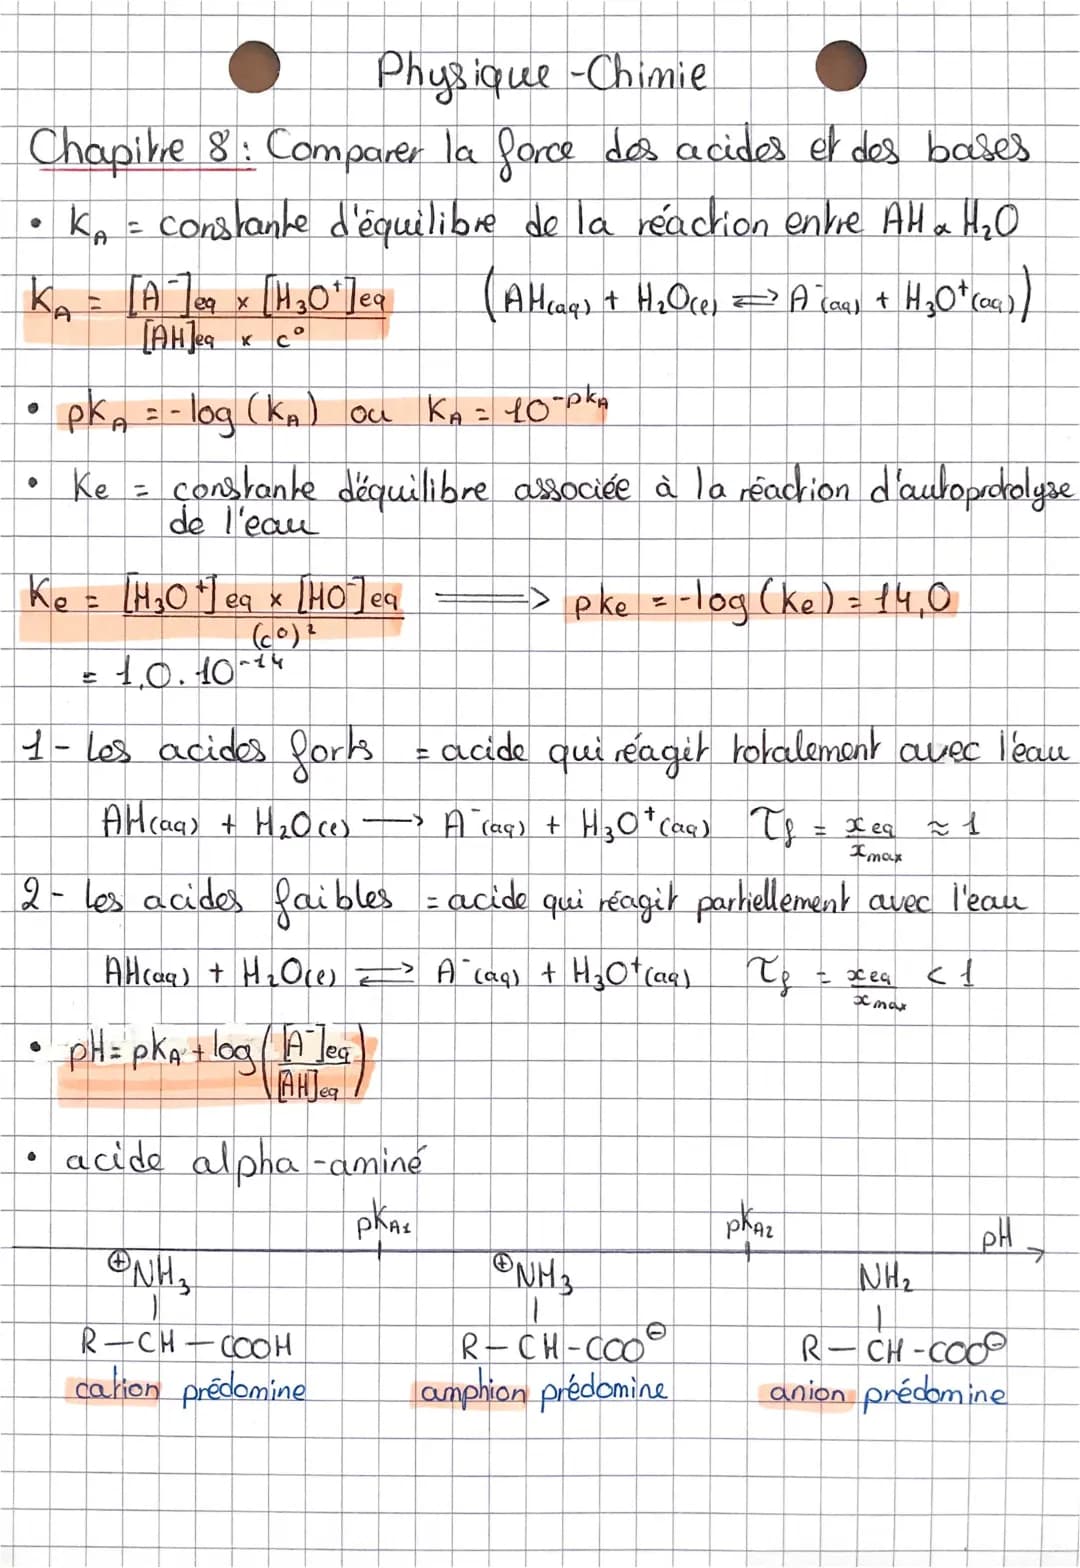 Physique - Chimie
Chapitre 8 : Comparer la force des acides et des bases
• KA = constante d'équilibre de la réaction entre AH & H₂O
KA = [A⁻]eq × [H₃O⁺]eq / [AH]eq × c° (AH(aq) + H₂O(l) ⇌ A⁻(aq) + H₃O⁺(aq))
• pKA = -log (KA) ou KA = 10^-pKA
• Ke = constante d'équilibre associée à la réaction d'autoprotolyse
de l'eau
Ke = [H₃O⁺]eq × [HO⁻]eq / (c°)² ⟹ pke = -log (Ke) = 14,0
= 1,0. 10⁻¹⁴
1 - Les acides forts = acide qui réagit totalement avec l'eau
AH(aq) + H₂O(l) → A⁻(aq) + H₃O⁺(aq) τf = xeq / xmax ≈ 1
2 - les acides faibles = acide qui réagit partiellement avec l'eau
AH(aq) + H₂O(l) ⇌ A⁻(aq) + H₃O⁺(aq) τf = xeq / xmax < 1
• pH = pKA + log ([A⁻]eq / [AH]eq)
• acide alpha-aminé
pKA1 pKA2 pH
⊕NH₃ ⊕NH₃ NH₂
R - CH - COOH R - CH - COO⊖ R - CH - COO⊖
cation prédomine amphion prédomine anion prédomine